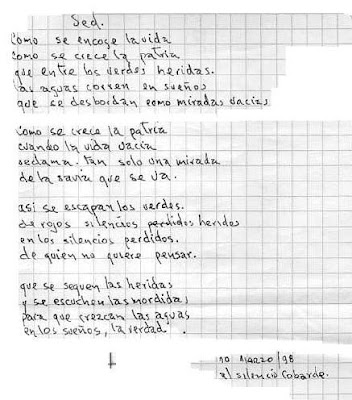 Sed.
Como se encoge la vida
como se crece la patria
que entre los verdes heridas.
las aguas corren en sueños
que se desbordan como miradas vacías
Como se crece la patria
cuando la vida vacía
reclama. tan solo una mirada
de la savia que se va.
así se escapan los verdes.
de rojos silencios perdidos heridos
en los silencios perdidos.
de quien no quiere pensar.
que se sequen las heridas
y se escuchen las mordidas
para que crezcan las aguas
en los sueños, la verdad.
10 MARZO/98
al silencio cobarde.